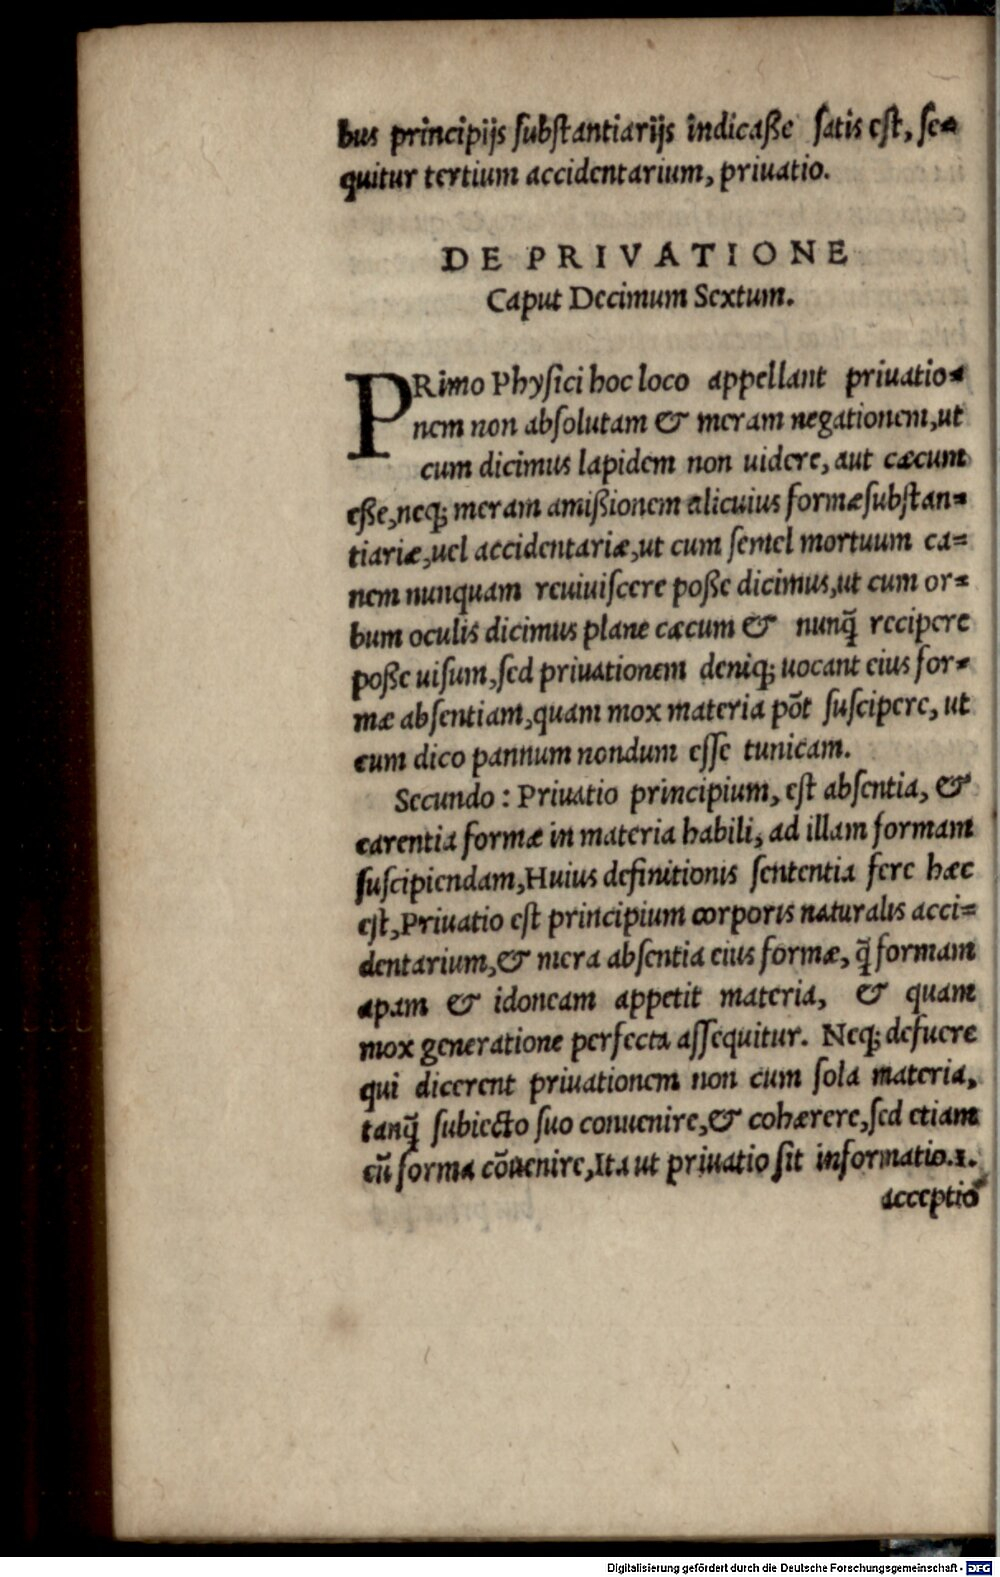 bus principijs substantiarijs indicaße satis est, se=
quitur tertium accidentarium, priuatio.
DE PRIVATIONE
Caput Decimum Sextum.
PRimo Physici hoc loco appellant priuatio=
nem non absolutam & meram negationem, ut
cum dicimus lapidem non uidere, aut cæcum
eße, neq; meram amißionem alicuius formæ substan=
tiariæ, uel accidentariæ, ut cum semel mortuum ca=
nem nunquam reuiuiscere poße dicimus, ut cum or=
bum oculis dicimus plane cæcum & nunq̃ recipere
poße uisum, sed priuationem deniq; uocant eius for=
mæ absentiam, quam mox materia põt suscipere, ut
cum dico pannum nondum esse tunicam.
Secundo: Priuatio principium, est absentia, &
carentia formæ in materia habili, ad illam formam
suscipiendam, Huius definitionis sententia fere hæc
est, Priuatio est principium corporis naturalis acci=
dentarium, & mera absentia eius formæ, q̃ formam
apam & idoneam appetit materia, & quam
mox generatione perfecta assequitur. Neq; defuere
qui dicerent priuationem non cum sola materia,
tanq̃ subiecto suo conuenire, & cohærere, sed etiam
cũ forma cõuenire, Ita ut priuatio sit informatio. 1.
acceptio
Digitalisierung gefördert durch die Deutsche Forschungsgemeinschaft - DFG